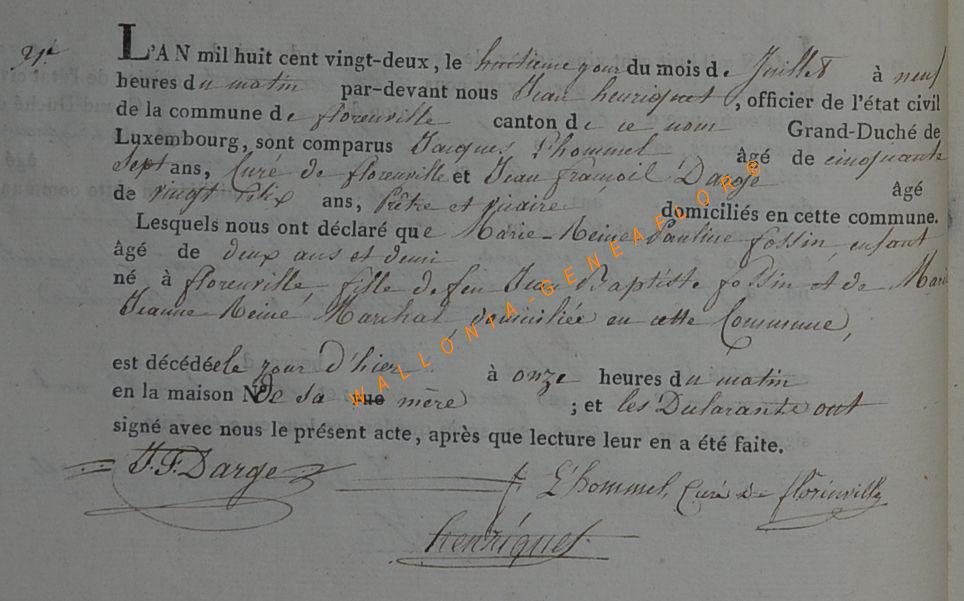 21e
L'AN mil huit cent vingt-deux, le huitieme jour du mois de Juillet à neuf
heures du matin par-devant nous Jean henriquet, officier de l'état civil
de la commune de florenville canton de ce nom Grand-Duché de
Luxembourg, sont comparus Jacques L'hommel, âgé de cinquante
Sept ans, Curé de florenville et Jean françois Darge âgé
de vingt ans, Prêtre et vicaire domiciliés en cette commune.
Lesquels nous ont déclaré que Marie-Reine Pauline fossin, enfant
âgé de deux ans et demi
né à florenville, fille de feu Jean Baptiste fossin et de Marie
Jeanne Reine Marchal, domiciliée en cette Commune,
est décédée le jour d'hier à onze heures du matin
en la maison No de sa rue mère ; et les Déclarants ont
signé avec nous le présent acte, après que lecture leur en a été faite.
J. F. Darge
L'hommel, Curé de florenville
henriquet
WALLONIA-GENEAFLOR©